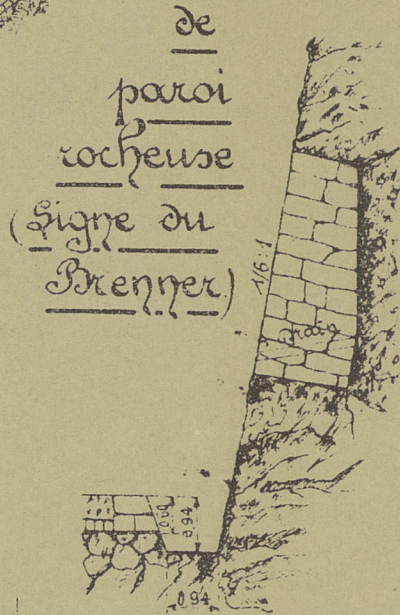 de
paroi
rocheuse
(Ligne du
Brenner)
1/6:1
0.60
0.94
0.94